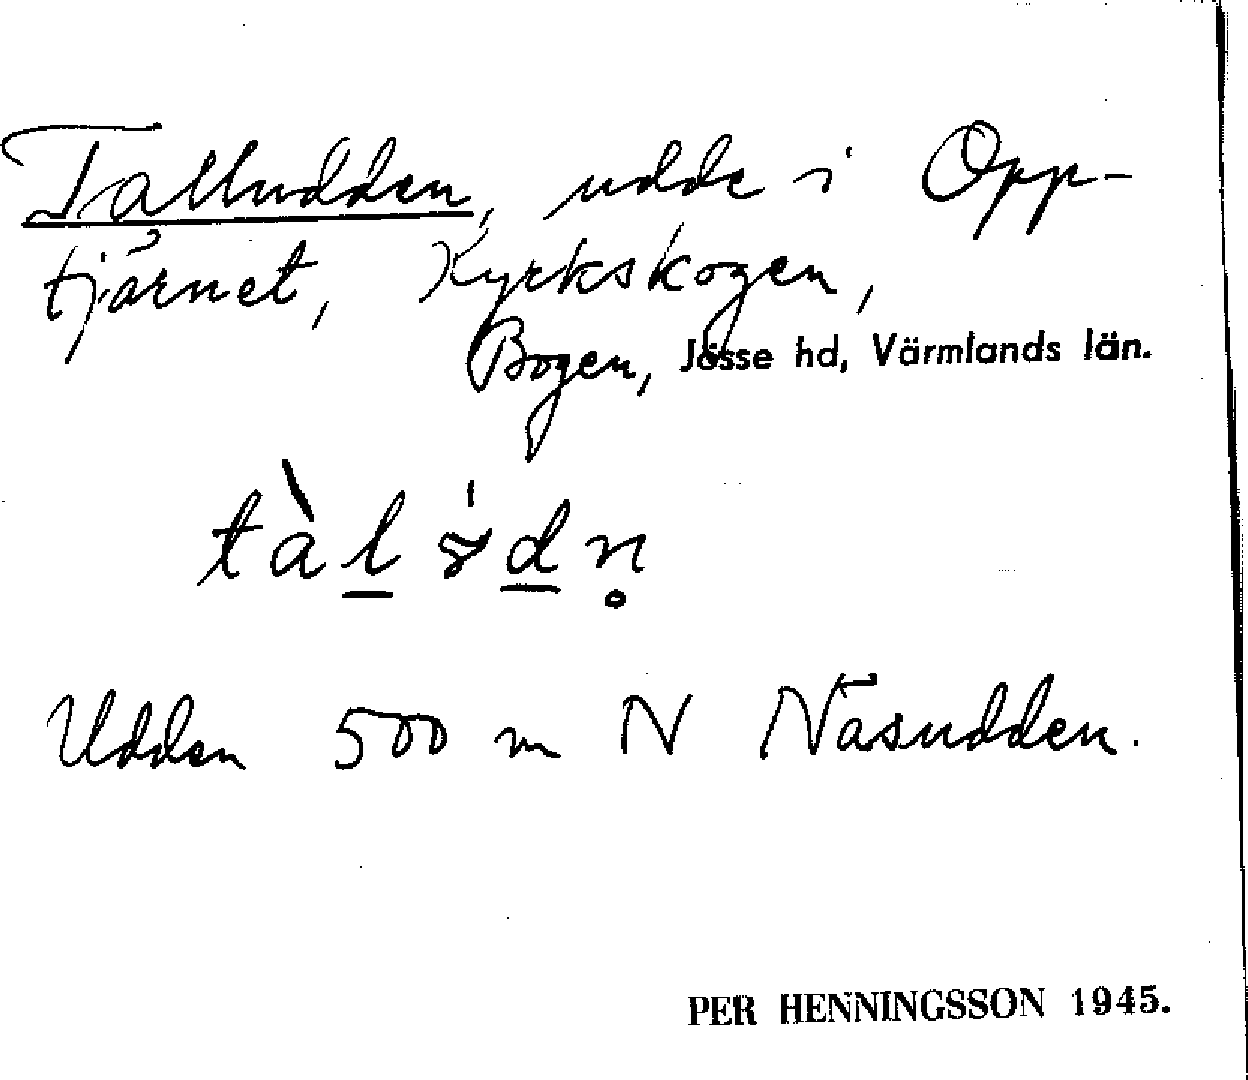 Talludden, udde i Opp-
tjärnet, Kyrkskogen,
Bogen, Jösse hd, Värmlands län.
Udden 500 m N Näsudden.
PER HENNINGSSON 1945.